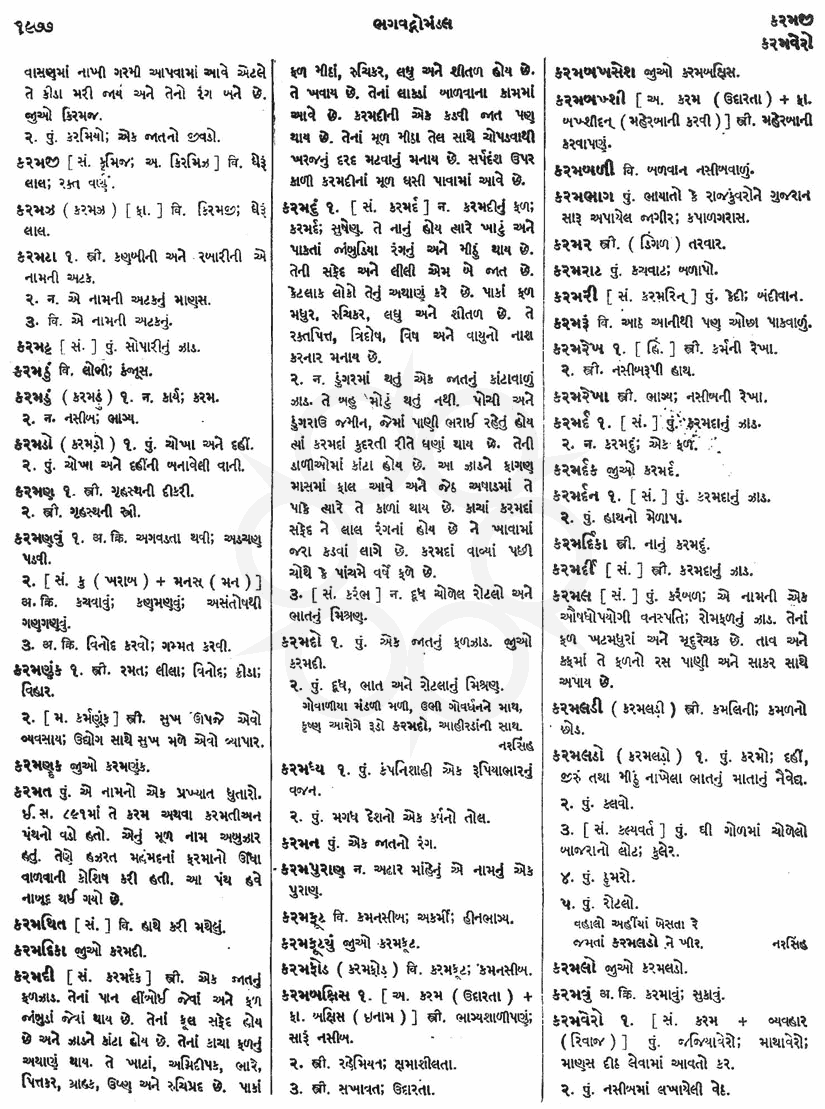 ૧૯૭૭
ભગવદ્ગોમંડલ
કરમજી
કરમવેરો
વાસણમાં નાખી ગરમી આપવામાં આવે એટલે
તે કીડા મરી જાય અને તેનો રંગ બને છે.
જીઓ કિરમજ.
૨. પું. કરમિયો; એક જાતનો જીવડો.
કરમજી [ સં. કૃમિજ; અ. કિરમિઝ ] વિ. ઘેરૂં
લાલ; રક્ત વર્ણું.
કરમઝ ( કરમઝ ) [ ફા. ] વિ. કિરમજી; ઘેરૂં
લાલ.
કરમટા ૧. સ્ત્રી. કણબીની અને રબારીની એ
નામની અટક.
૨. ન. એ નામની અટકનું માણસ.
૩. વિ. એ નામની અટકનું.
કરમટ્ટ [ સં. ] પું. સોપારીનું ઝાડ.
કરમઠું વિ. લોભી; કંજૂસ.
કરમડું ( કરમડ઼ું ) ૧. ન. કાર્ય; કરમ.
૨. ન. નસીબ; ભાગ્ય.
કરમડો ( કરમડ઼ો ) ૧. પું. ચોખા અને દહીં.
૨. પું. ચોખા અને દહીંની બનાવેલી વાની.
કરમણ ૧. સ્ત્રી. ગૃહસ્થની દીકરી.
૨. સ્ત્રી. ગૃહસ્થની સ્ત્રી.
કરમણવું ૧. અ. ક્રિ. અગવડતા થવી; અડચણ
પડવી.
૨. [ સં. કુ ( ખરાબ ) + મનસ ( મન ) ]
અ. ક્રિ. કચવાવું; કણમણવું; અસંતોષથી
ગણગણવું.
૩. અ. ક્રિ. વિનોદ કરવો; ગમ્મત કરવી.
કરમણુંક ૧. સ્ત્રી. રમત; લીલા; વિનોદ; ક્રીડા;
વિહાર.
૨. [ મ. કર્મણુંક ] સ્ત્રી. સુખ ઊપજે એવો
વ્યવસાય; ઉદ્યોગ સાથે સુખ મળે એવો વ્યાપાર.
કરમણૂક જીઓ કરમણુંક.
કરમત પું. એ નામનો એક પ્રખ્યાત ધુતારો.
ઈ. સ. ૮૯૧માં તે કરમ અથવા કરમતીઅન
પંથનો વડો હતો. એનું મૂળ નામ અબુઝાર
હતું. તેણે હઝરત મહંમદનાં ફરમાનો ઊંધા
વાળવાની કોશિષ કરી હતી. આ પંથ હવે
નાબૂદ થઈ ગયો છે.
કરમથિત [ સં. ] વિ. હાથે કરી મથેલું.
કરમદિકા જીઓ કરમદી.
કરમદી [ સં. કરમર્દક ] સ્ત્રી. એક જાતનું
ફળઝાડ. તેનાં પાન લીંબોઈ જેવાં અને ફળ
જાંબુડાં જેવાં થાય છે. તેનાં ફૂલ સફેદ હોય
છે અને ઝાડને કાંટા હોય છે. તેનાં કાચા ફળનું
અથાણું થાય. તે ખાટાં, અગ્નિદીપક, ભારે,
પિત્તકર, ગ્રાહક, ઉષ્ણ અને રુચિપ્રદ છે. પાકાં
ફળ મીઠાં, રુચિકર, લઘુ અને શીતળ હોય છે.
તે ખવાય છે. તેનાં લાકડાં બાળવાના કામમાં
આવે છે. કરમદીની એક કડવી જાત પણ
થાય છે. તેનાં મૂળ મીઠા તેલ સાથે ચોપડવાથી
ખરજનું દરદ મટવાનું મનાય છે. સર્પદંશ ઉપર
કાળી કરમદીનાં મૂળ ઘસી પાવામાં આવે છે.
કરમદું ૧. [ સં. કરમર્દ ] ન. કરમદીનું ફળ;
કરમર્દ; સુષેણ. તે નાનું હોય ત્યારે ખાટું અને
પાકતાં જાંબુડિયા રંગનું અને મીઠું થાય છે.
તેની સફેદ અને લીલી એમ બે જાત છે.
કેટલાક લોકો તેનું અથાણું કરે છે. પાકાં ફળ
મધુર, રુચિકર, લઘુ અને શીતળ છે. તે
રક્તપિત્ત, ત્રિદોષ, વિષ અને વાયુનો નાશ
કરનાર મનાય છે.
૨. ન. ડુંગરમાં થતું એક જાતનું કાંટાવાળું
ઝાડ. તે બહુ મોટું થતું નથી. પોચી અને
ડુંગરાઉ જમીન, જેમાં પાણી ભરાઈ રહેતું હોય
ત્યાં કરમદાં કુદરતી રીતે ઘણાં થાય છે. તેની
ડાળીઓમાં કાંટા હોય છે. આ ઝાડને ફાગણ
માસમાં ફાલ આવે અને જેઠ અષાડમાં તે
પાકે ત્યારે તે કાળાં થાય છે. કાચાં કરમદાં
સફેદ ને લાલ રંગનાં હોય છે ને ખાવામાં
જરા કડવાં લાગે છે. કરમદાં વાવ્યાં પછી
ચોથે કે પાંચમે વર્ષે ફળે છે.
૩. [ સં. કરંભ ] ન. દૂધ ચોળેલ રોટલો અને
ભાતનું મિશ્રણ.
કરમદો ૧. પું. એક જાતનું ફળઝાડ. જીઓ
કરમદી.
૨. પું. દૂધ, ભાત અને રોટલાનું મિશ્રણ.
ગોવાળીયા મંડળી મળી, ઉભી ગોવર્ધનને માથ,
કૃષ્ણ આરોગે રૂડો કરમદો, આહીરડાંની સાથ.
નરસિંહ
કરમધ્ય ૧. પું. કંપનિશાહી એક રૂપિયાભારનું
વજન.
૨. પું. મગધ દેશનો એક કર્ષનો તોલ.
કરમન પું. એક જાતનો રંગ.
કરમપુરાણ ન. અઢાર માંહેનું એ નામનું એક
પુરાણ.
કરમફૂટ વિ. કમનસીબ; અકર્મી; હીનભાગ્ય.
કરમફૂટયું જીઓ કરમફૂટ.
કરમફોડ ( કરમફોડ઼ ) વિ. કરમફૂટ; કમનસીબ.
કરમબક્ષિસ ૧. [ અ. કરમ ( ઉદારતા ) +
ફા. બક્ષિસ ( ઇનામ ) ] સ્ત્રી. ભાગ્યશાળીપણું;
સારૂં નસીબ.
૨. સ્ત્રી. રહેમિયત; ક્ષમાશીલતા.
૩. સ્ત્રી. સખાવત; ઉદારતા.
કરમબખસેશ જીઓ કરમબક્ષિસ.
કરમબખ્શી [ અ. કરમ ( ઉદારતા ) + ફા.
બખ્શીદન્ ( મહેરબાની કરવી ) ] સ્ત્રી. મહેરબાની
કરવાપણું.
કરમબળી વિ. બળવાન નસીબવાળું.
કરમભાગ પું. ભાયાતો કે રાજકુંવરોને ગુજરાન
સારૂ અપાયેલ જાગીર; કપાળગરાસ.
કરમર સ્ત્રી. ( ડિંગળ ) તરવાર.
કરમરાટ પું. કચવાટ; બળાપો.
કરમરી [ સં. કરમરિન્ ] પું. કેદી; બંદીવાન.
કરમરૂં વિ. આઠ આનીથી પણ ઓછા પાકવાળું.
કરમરેખ ૧. [ હિં. ] સ્ત્રી. કર્મની રેખા.
૨. સ્ત્રી. નસીબરૂપી હાથ.
કરમરેખા સ્ત્રી. ભાગ્ય; નસીબની રેખા.
કરમર્દ ૧. [ સં. ] પું. કરમદાનું ઝાડ.
૨. ન. કરમદું; એક ફળ.
કરમર્દક જીઓ કરમર્દ.
કરમર્દન ૧. [ સં. ] પું. કરમદાનું ઝાડ.
૨. પું. હાથનો મેળાપ.
કરમર્દિકા સ્ત્રી. નાનું કરમદું.
કરમર્દી [ સં. ] સ્ત્રી. કરમદાનું ઝાડ.
કરમલ [ સં. ] પું. કરંબળ; એ નામની એક
ઔષધોપયોગી વનસ્પતિ; રોમફળનું ઝાડ. તેનાં
ફળ ખટમધુરાં અને મૃદુરેચક છે. તાવ અને
કફમાં તે ફળનો રસ પાણી અને સાકર સાથે
અપાય છે.
કરમલડી ( કરમલડ઼ી ) સ્ત્રી. કમલિની; કમળનો
છોડ.
કરમલડો ( કરમલડ઼ો ) ૧. પું. કરમો; દહીં,
જીરું તથા મીઠું નાખેલા ભાતનું માતાનું નૈવેદ્ય.
૨. પું. કલવો.
૩. [ સં. કલ્યવર્ત ] પું. ઘી ગોળમાં ચોળેલો
બાજરાનો લોટ; કુલેર.
૪. પું. ઠુમરો.
૫. પું. રોટલો.
વહાલો અહીંયાં બેસતા રે
જમતાં કરમલડો ને ખીર. નરસિંહ
કરમલો જીઓ કરમલડો.
કરમવું અ. ક્રિ. કરમાવું; સુકાવું.
કરમવેરો ૧. [ સં. કરમ + વ્યવહાર
( રિવાજ ) ] પું. જજિયાવેરો; માથાવેરો;
માણસ દીઠ લેવામાં આવતો કર.
૨. પું. નસીબમાં લખાયેલી વેઠ.